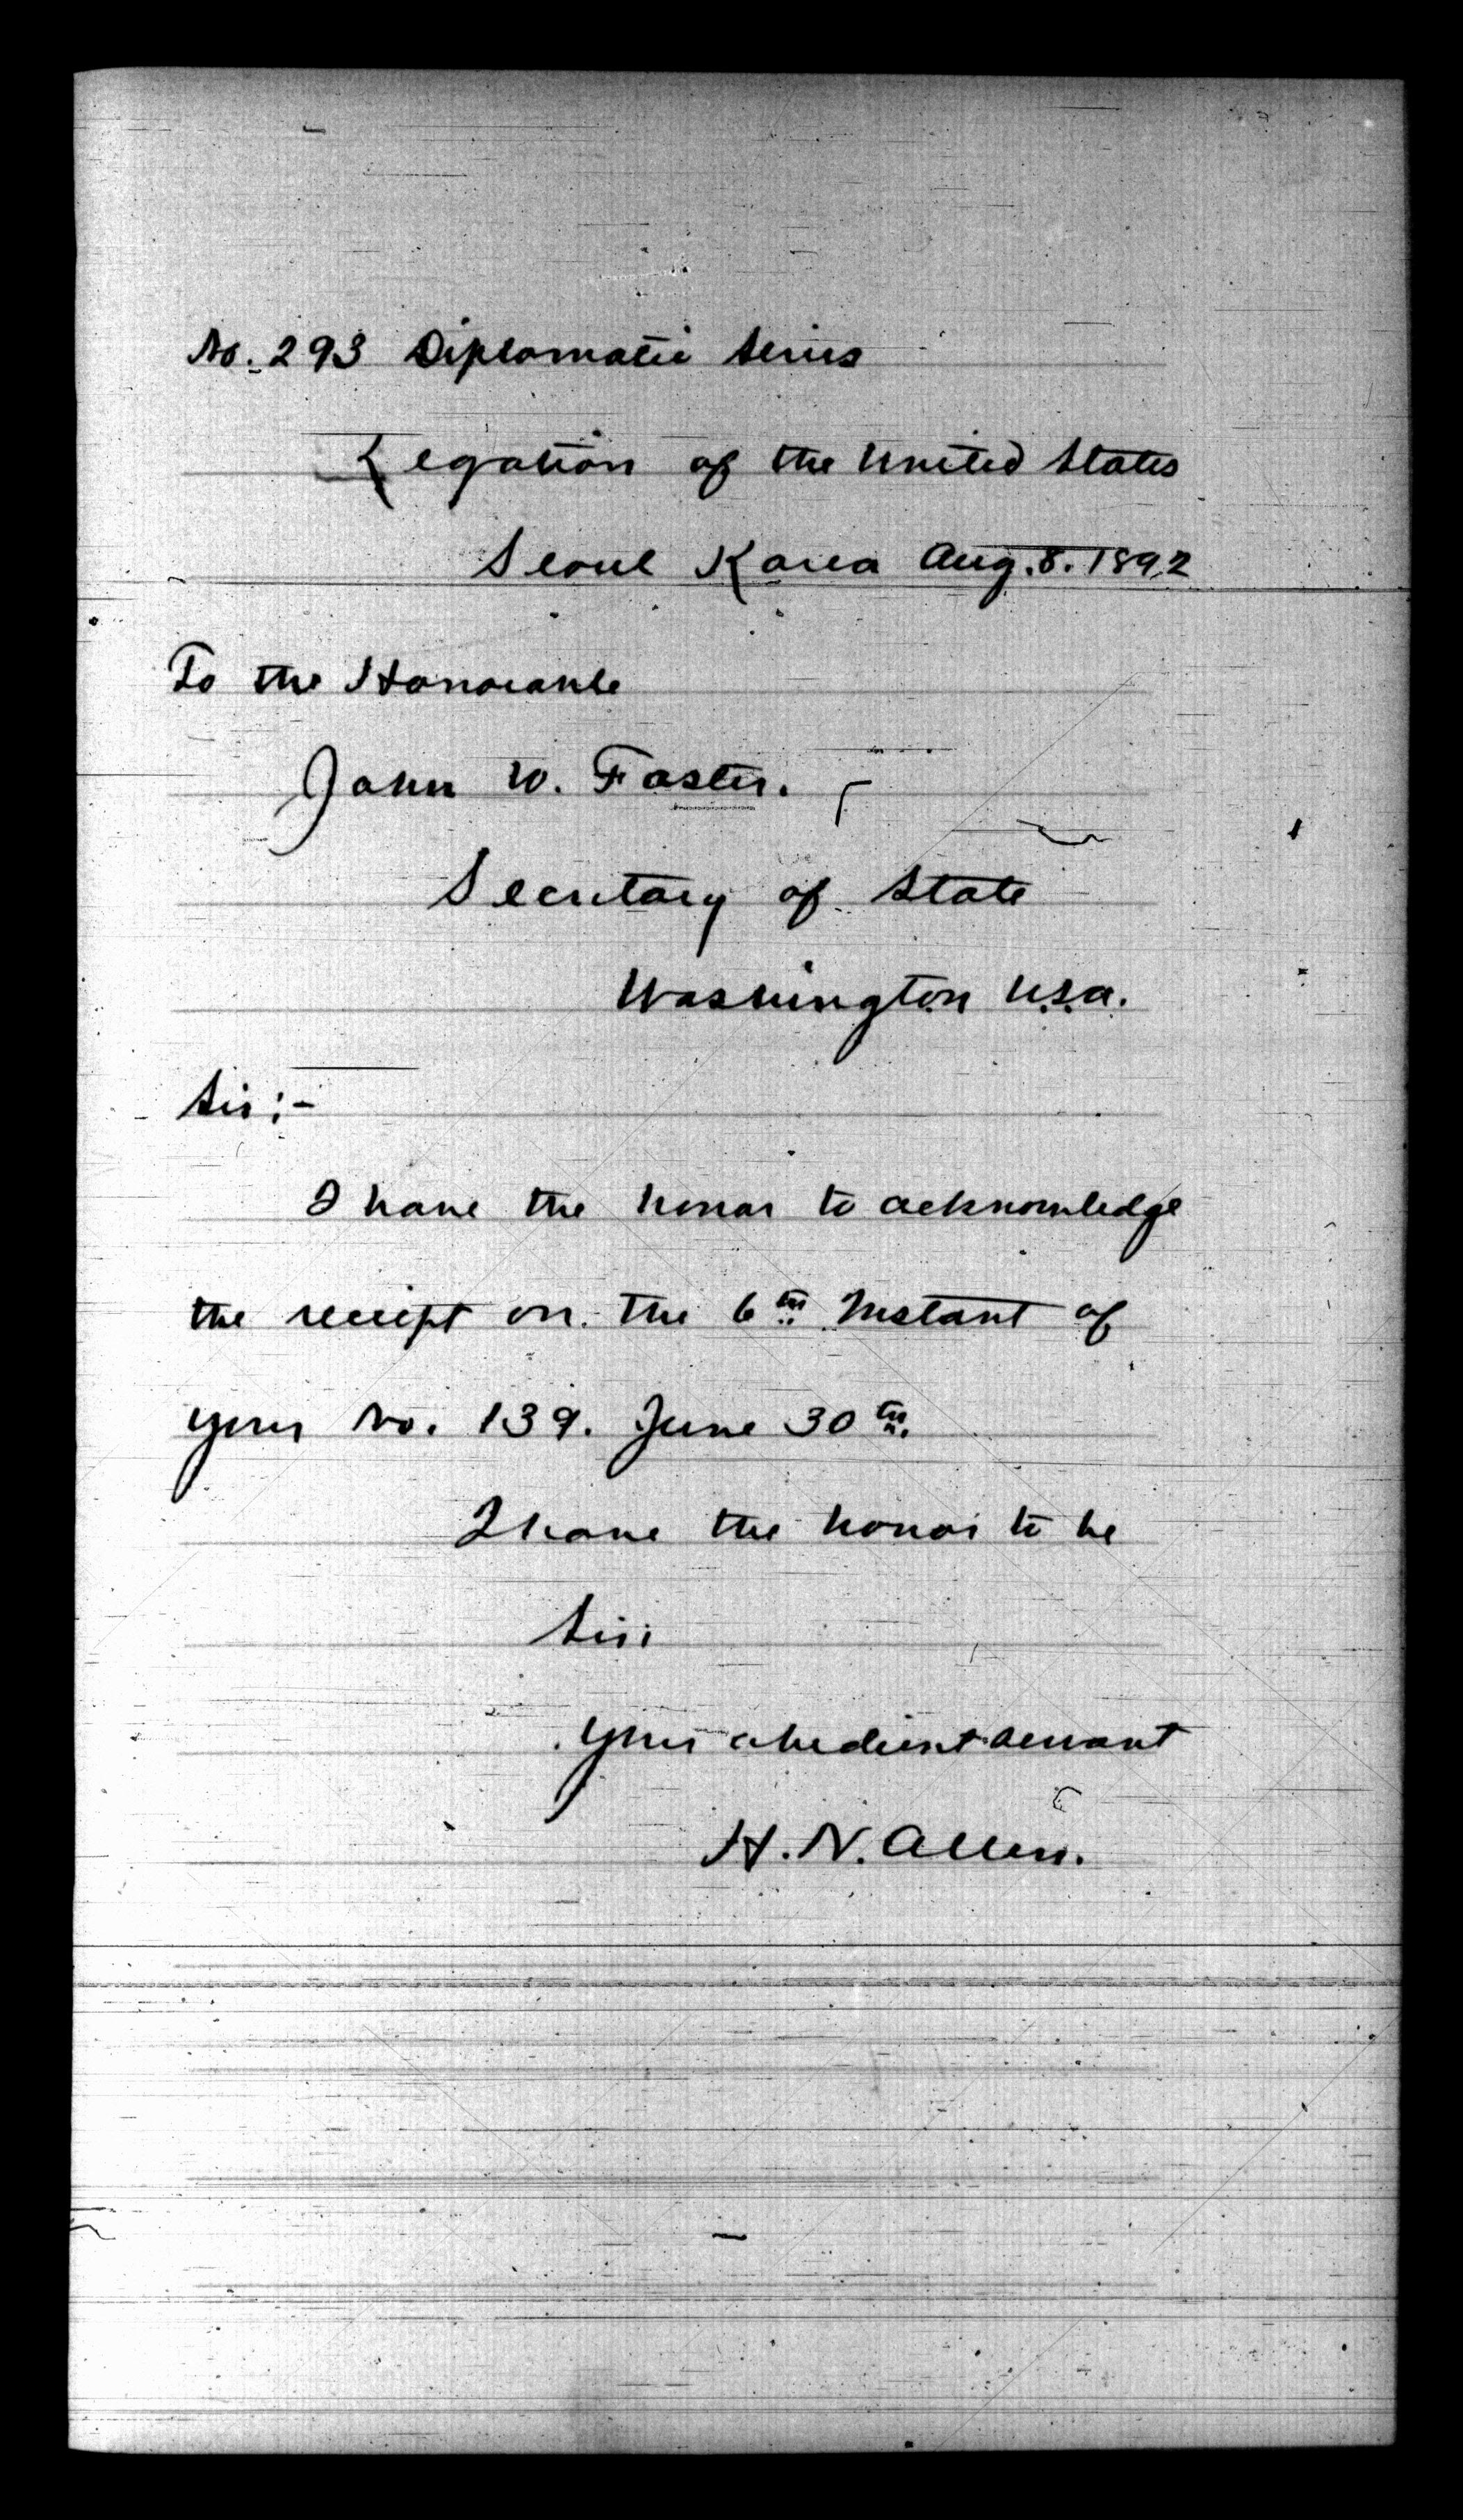 No. 293 Diplomatic Series
Legation of the United States
Seoul Korea Aug. 8. 1892
To the Honorable
John W. Foster.
Secretary of State
Washington U.S.A.
Sir:-
I have the honor to acknowledge
the receipt on the 6th Instant of
your No. 139. June 30th.
I have the honor to be
Sir:
Your obedient servant
H. N. Allen.